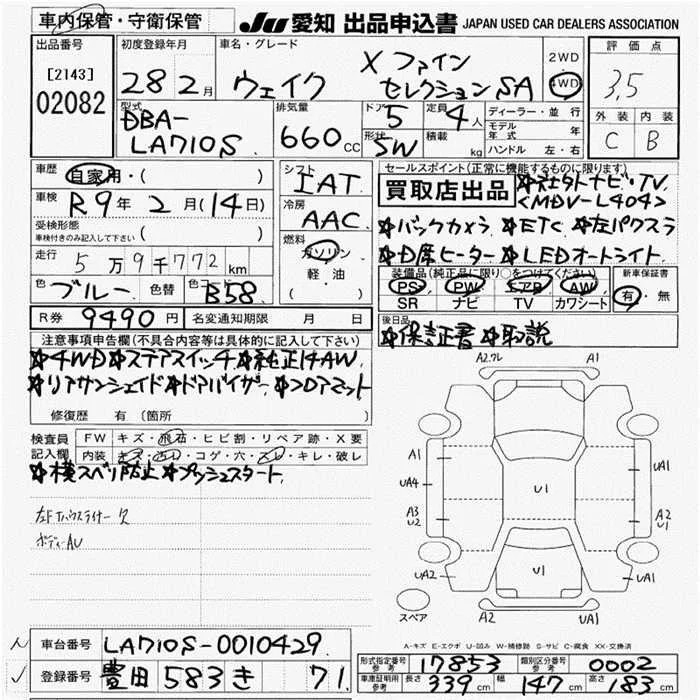 車内保管・守衛保管 JU 愛知 出品申込書 JAPAN USED CAR DEALERS ASSOCIATION
出品番号 [2143] 02082
初度登録年月 28 2月
車名・グレード ウェイク X ファインセレクションSA
2WD 4WD
評価点 3.5
外装 内装
C B
型式 DBA-LA710S
排気量 660 CC
ドア 5 定員 4人
形状 SW 積載 kg
ディーラー・並行
モデル年式 年
ハンドル 左・右
車歴 自家用・( )
車検 R9年 2月(14日)
受検形態 ( )
車検付きのみ記入して下さい
走行 5万9千772km
色 ブルー 色替 色コード B58
R券 9490円 名変通知期限 月 日
シフト IAT
冷房 AAC
燃料 ガソリン
軽・油
( )
セールスポイント(正常に機能するものに限ります)
買取店出品 ナビ・TV
<MDV-L404>
バックカメラ ETC 左パワスラ
D席ヒーター LEDオートライト
装備品(純正品に限り○をつけてください)
PS PW エアB AW
SR ナビ TV カワシート
新車保証書
有・無
後日品
保証書 取説
注意事項申告欄(不具合内容等は具体的に記入して下さい)
4WD ステアスイッチ 純正14AW
リアサンシェイド ドアバイザー フロアマット
修復歴 有(箇所 )
検査員記入欄
FW キズ・飛石・ヒビ割・リペア跡・X要
内装 キズ・汚レ・コゲ・穴・スレ・キレ・破レ
横スベリ防止 プッシュスタート
左Fハウスライナー欠
ボディーAU
A2.フレ A1
A1 UA1
UA4 U1
A3 U2 A2 U1
UA2 U1 UA1
スペア A2 UA1
A-キズ E-エクボ U-凹み W-補修跡 S-サビ C-腐食 XX-交換済
車台番号 LA710S-0010429
登録番号 豊田 583 き 71
形式指定番号 参考 17853 類別区分番号 参考 0002
車庫証明用 参考 長さ 339cm 幅 147cm 高さ 183cm